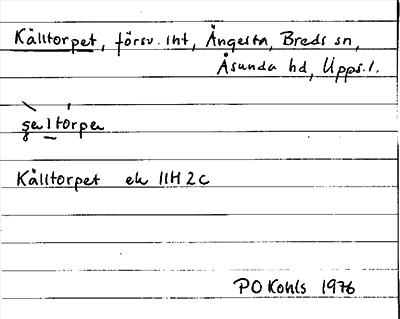 Källtorpet, försv. int, Ängesta, Breds sn,
Åsunda hd, Upps. l.
Källtorpet ek 11H 2c
P O Kohls 1976